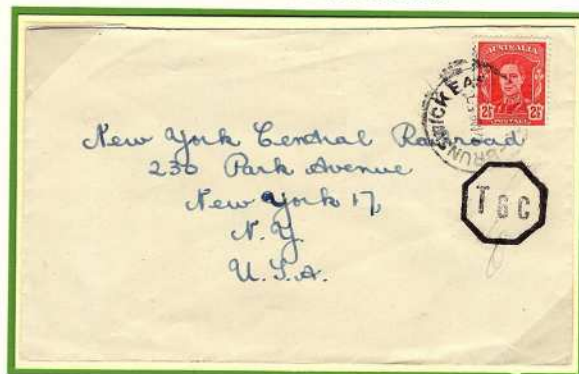 AUSTRALIA
2½ 2½
POSTAGE
BRUNSWICK EAST
New York Central Railroad
230 Park Avenue
New York 17,
N.Y.
U.S.A.
T G C